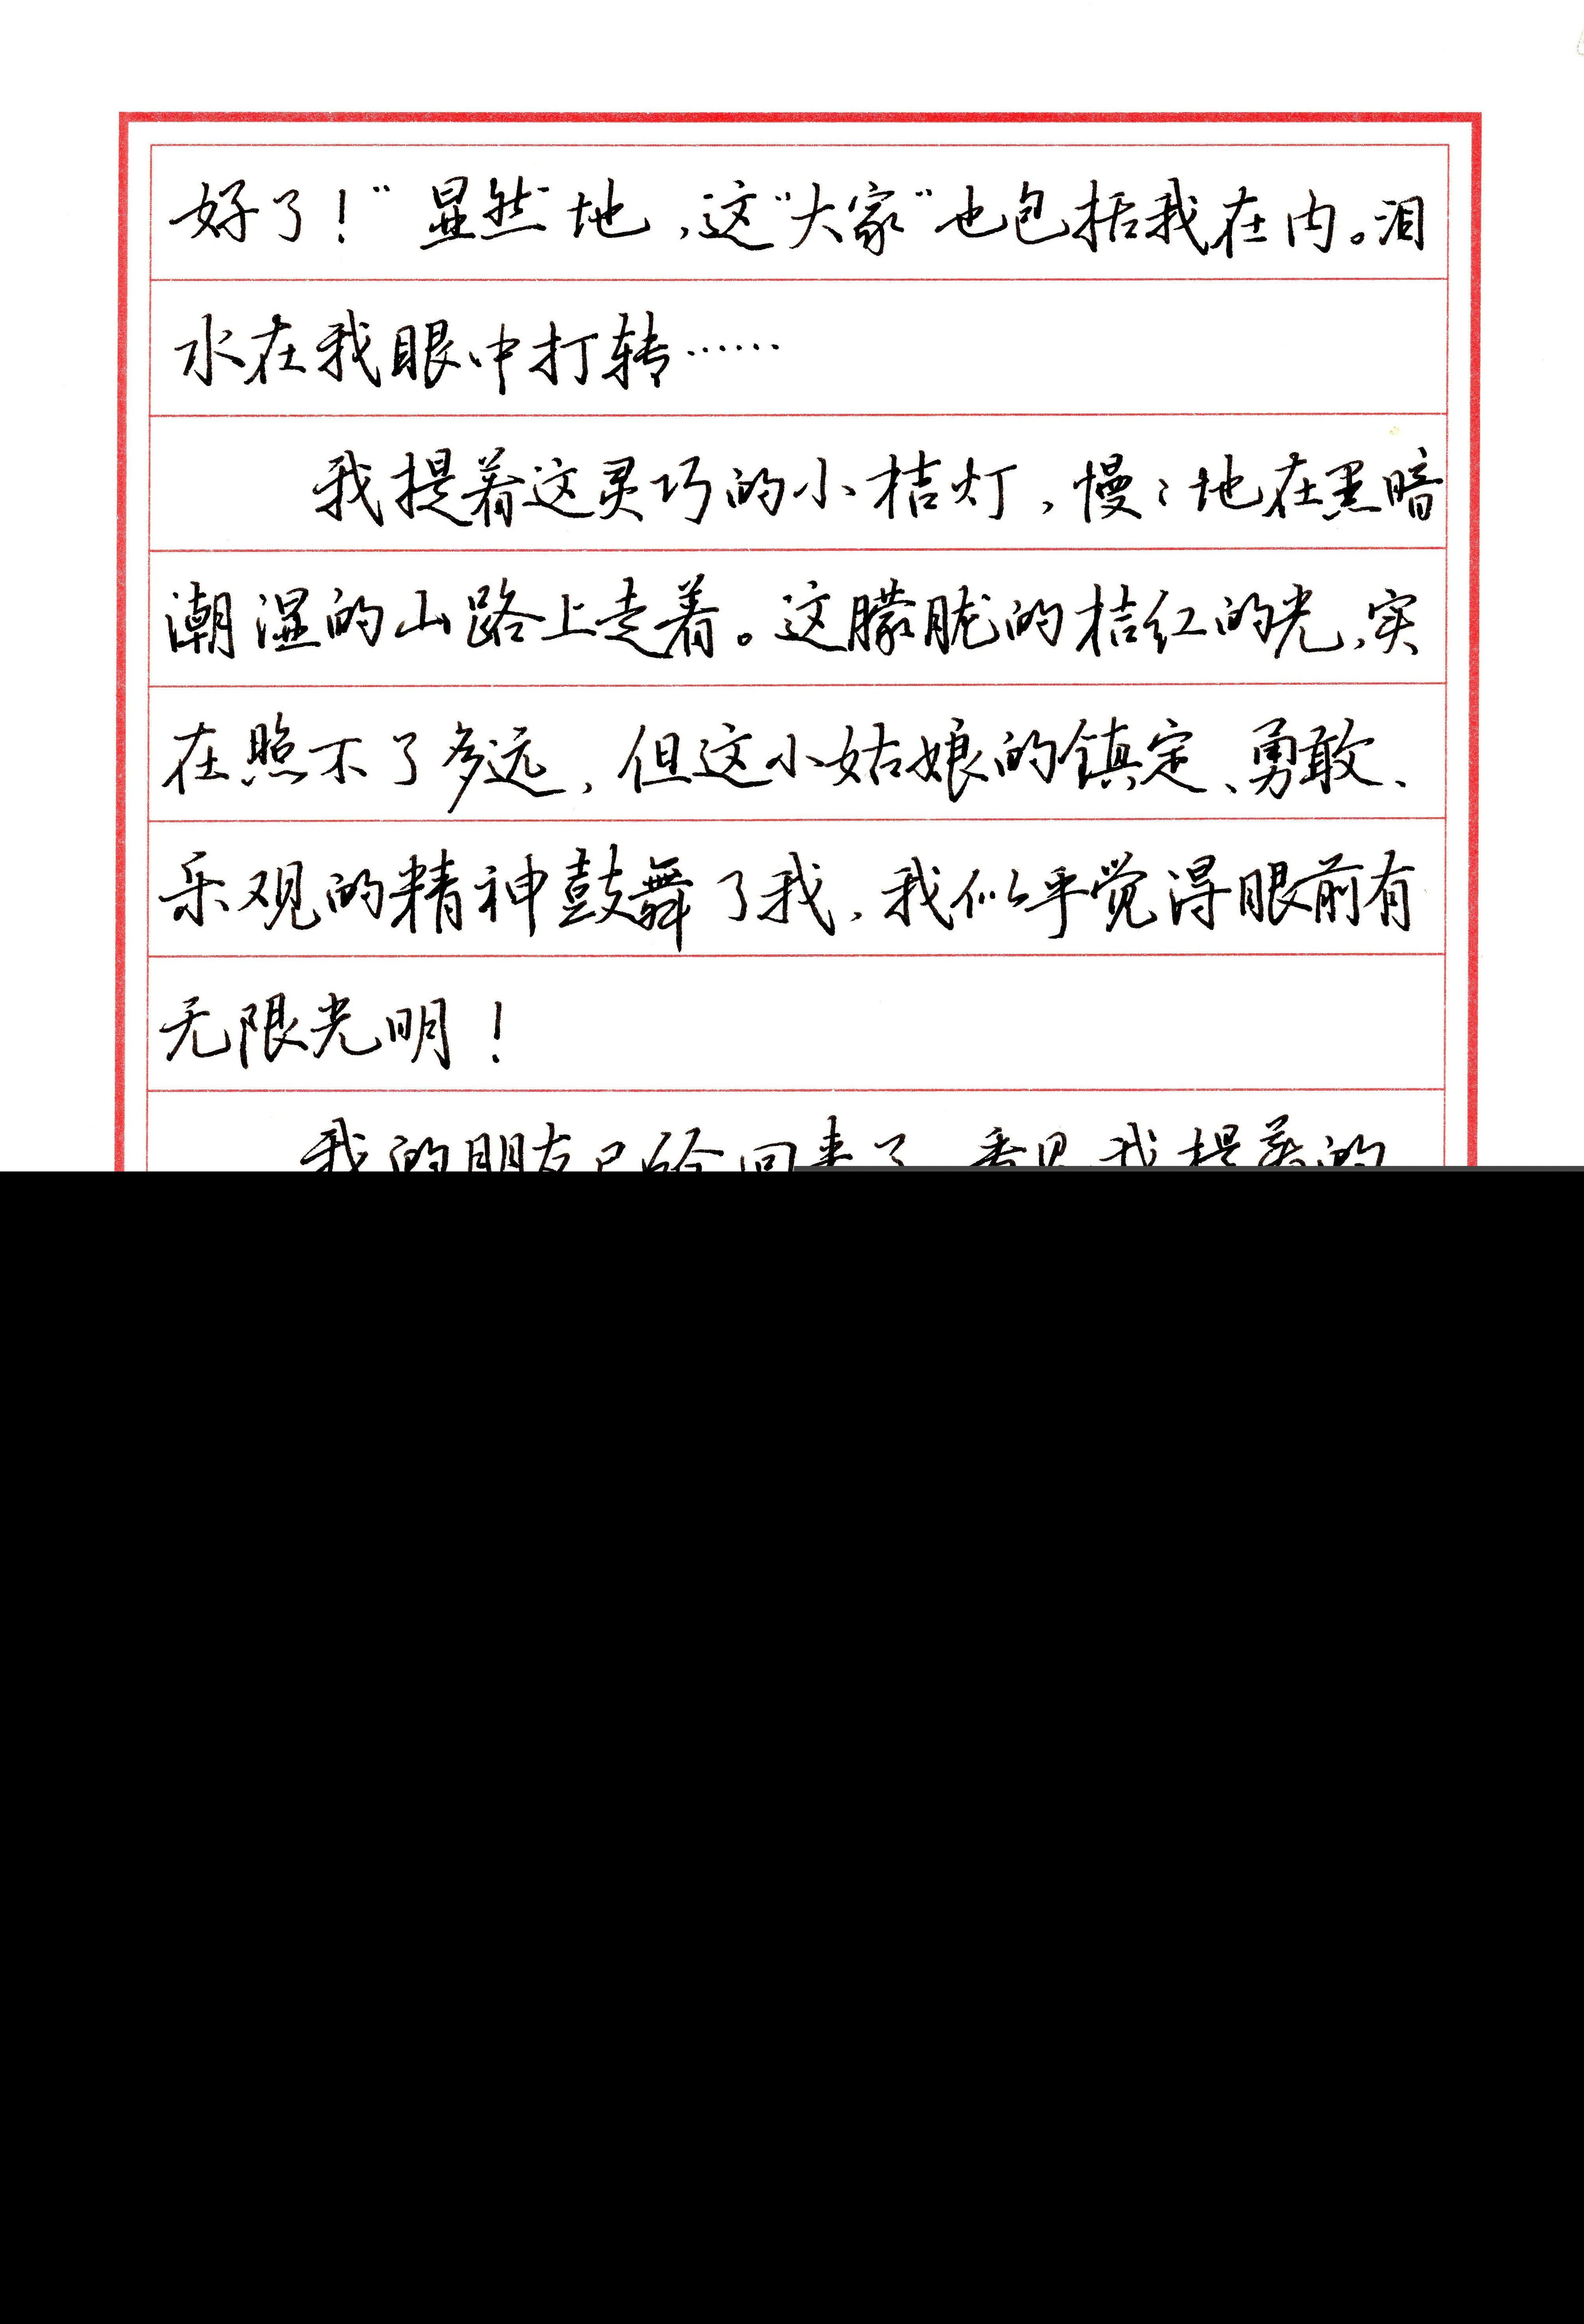 好了！”显然地，这“大家”也包括我在内。泪
水在我眼中打转……
我提着这灵巧的小桔灯，慢々地在黑暗
潮湿的山路上走着。这朦胧的桔红的光，实
在照不了多远，但这小姑娘的镇定、勇敢、
乐观的精神鼓舞了我，我似乎觉得眼前有
无限光明！
我的朋友已经回来了，看见我提着的